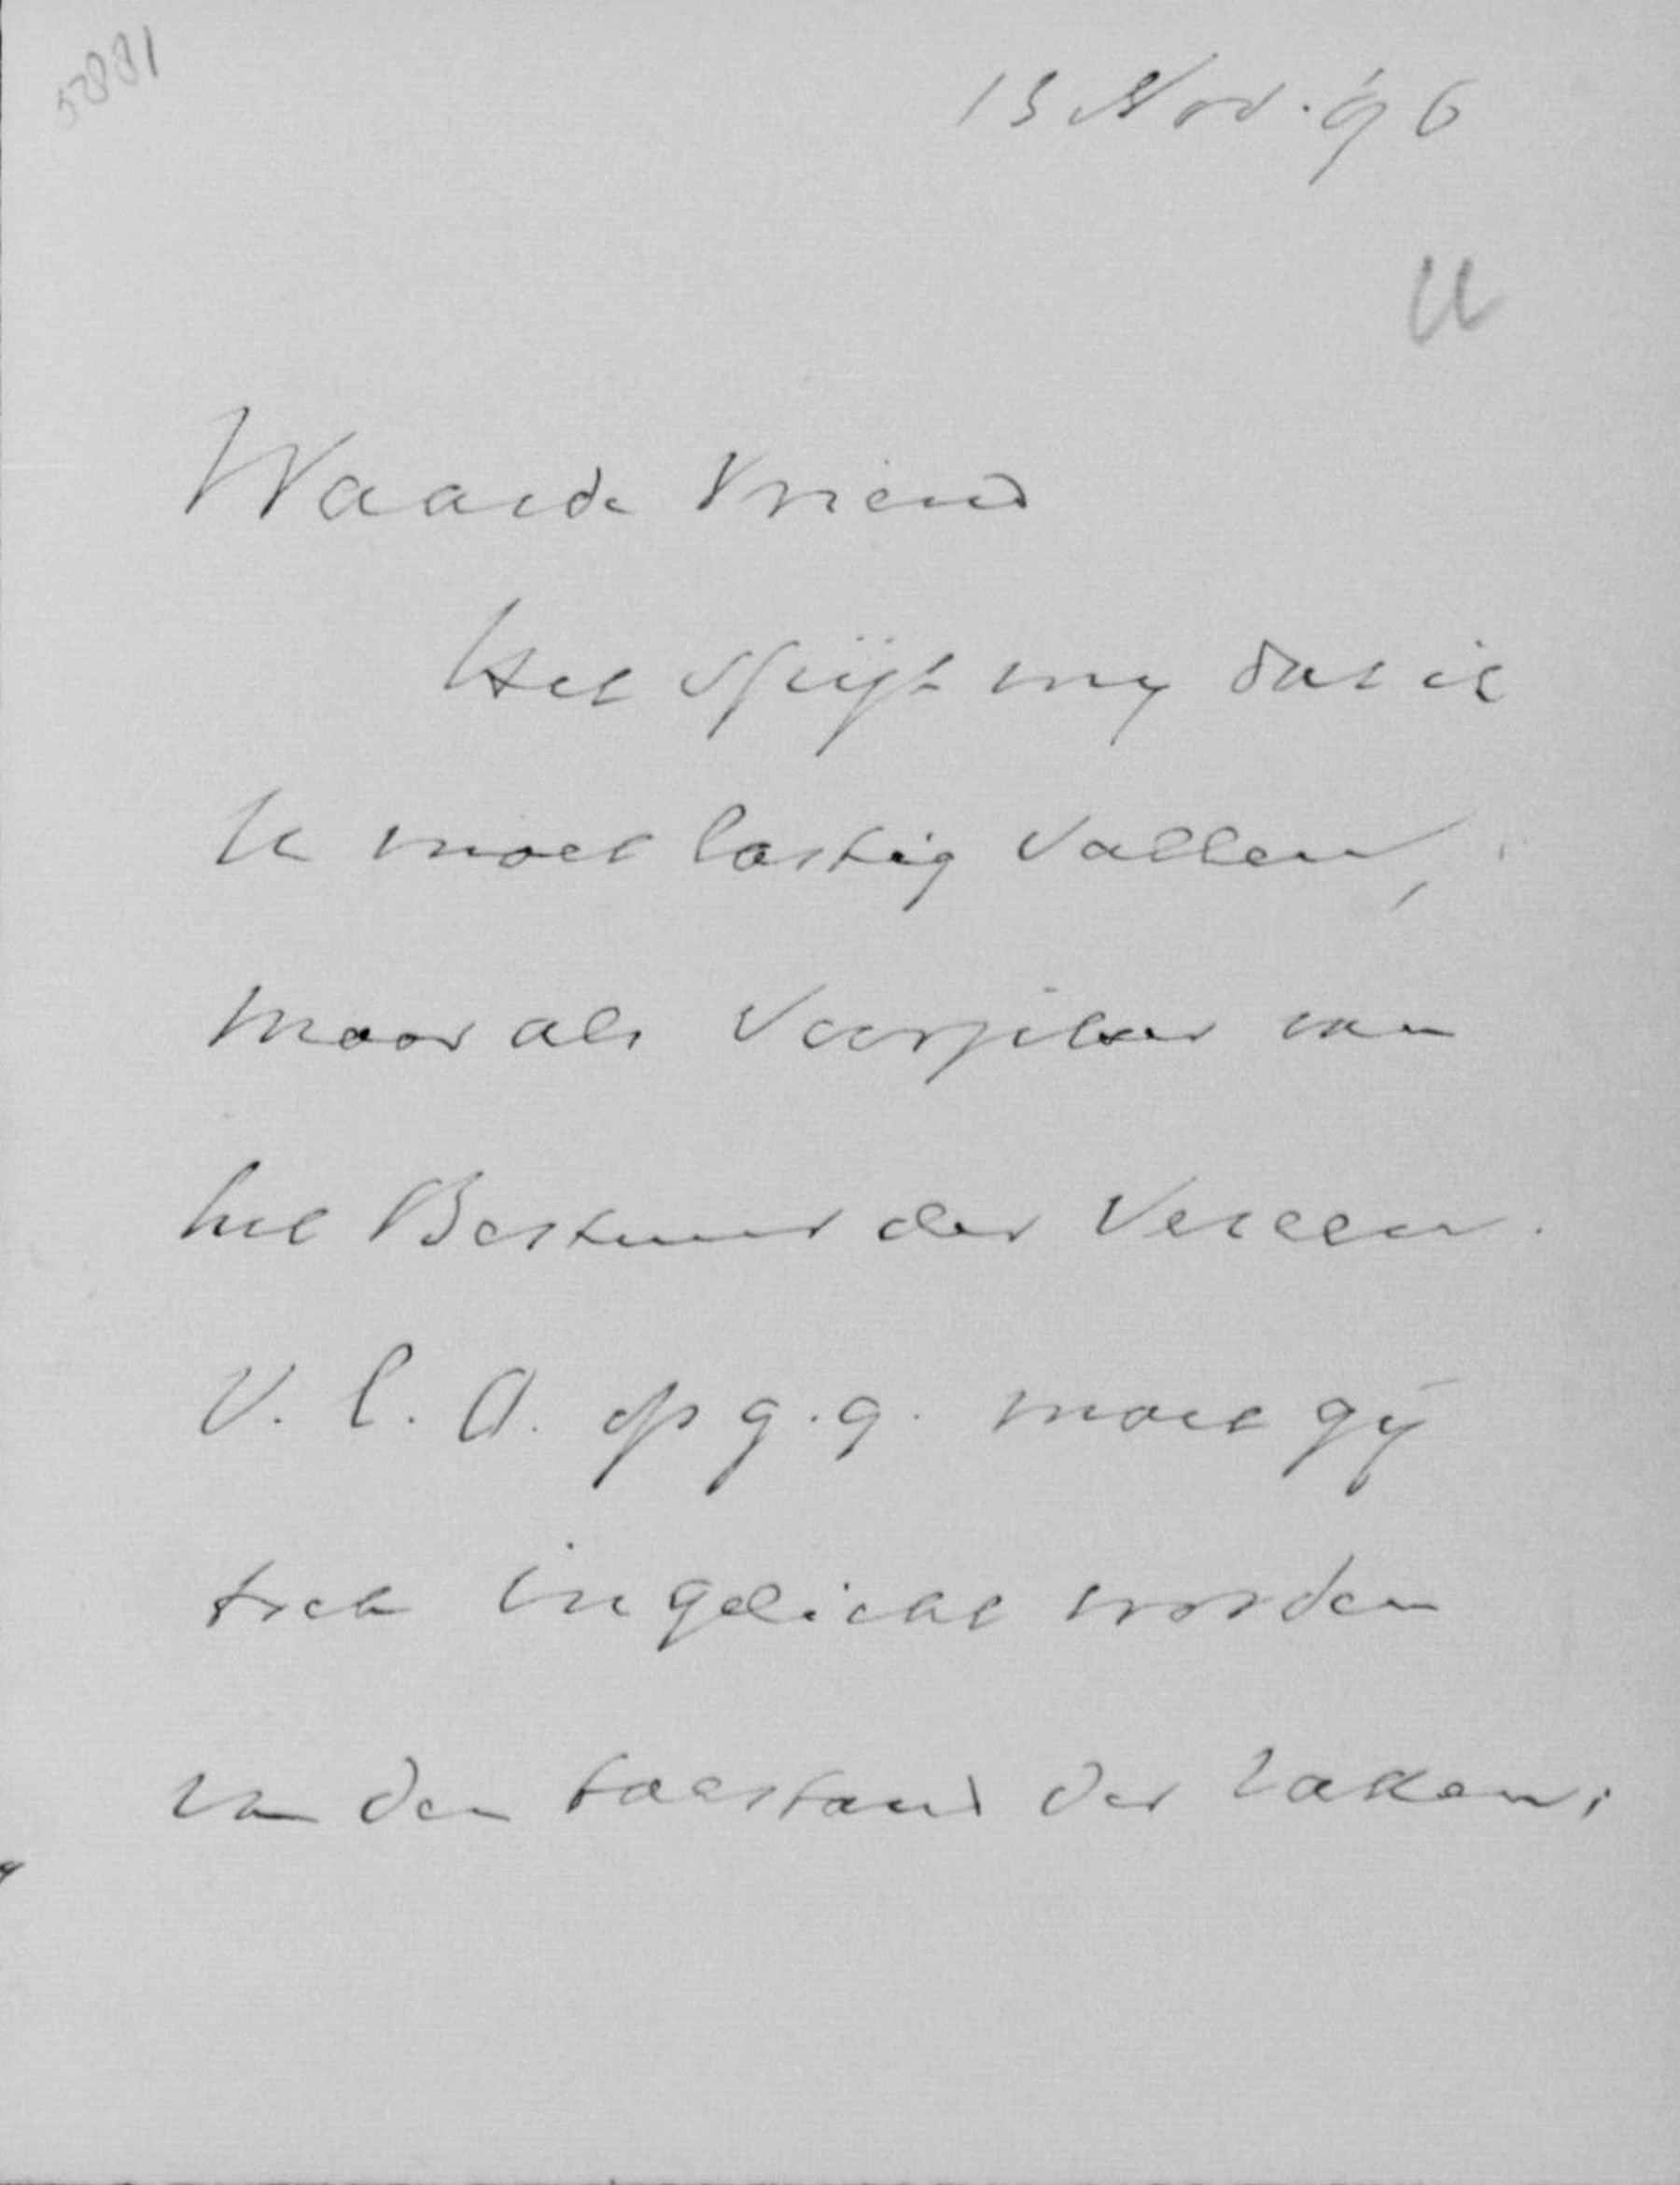 5881
13 Nov. '96
U
Waarde Vriend
Het spijt my dat ik
U moet lastig vallen,
maar als Voorzitter van
het Bestuur der Vereen.
v. l. O. op g. g. moet gij
toch ingelicht worden
van den toestand der zaken;